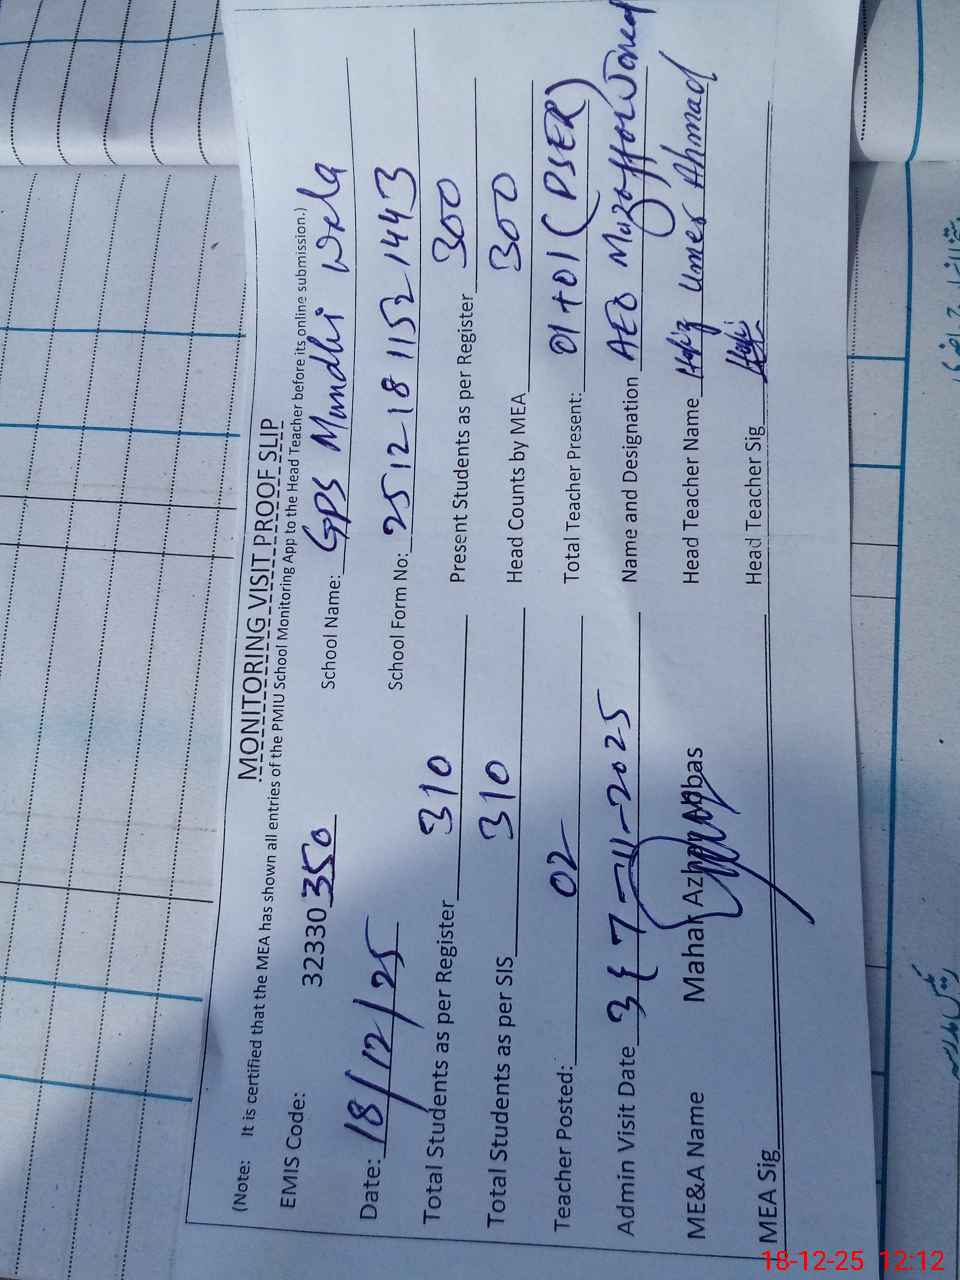 MONITORING VISIT PROOF SLIP
(Note: It is certified that the MEA has shown all entries of the PMIU School Monitoring App to the Head Teacher before its online submission.)
EMIS Code: 32330350 School Name: GPS Mundhi Wala
Date: 18/12/25 School Form No: 25121811521443
Total Students as per Register 310 Present Students as per Register 300
Total Students as per SIS 310 Head Counts by MEA 300
Teacher Posted: 02 Total Teacher Present: 01+01 (PSER)
Admin Visit Date 3 { 7-11-2025 Name and Designation AEO
ME&A Name Mahar Azhar Abbas Head Teacher Name Hafiz Umer Ahmad
MEA Sig Head Teacher Sig
18-12-25 12:12